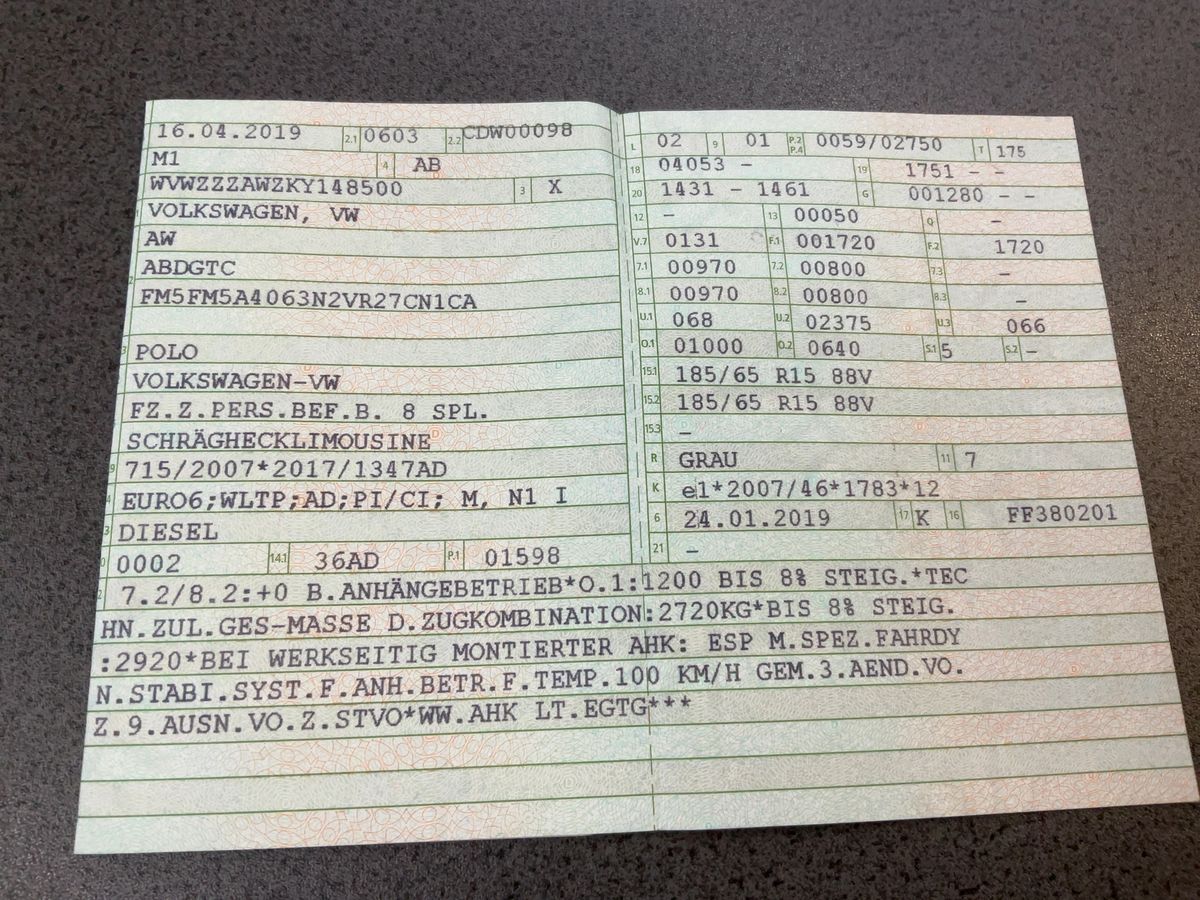 16.04.2019 2.1 0603 2.2 CDW00098
M1 4 AB
WVWZZZAWZKY148500 3 X
VOLKSWAGEN, VW
AW
ABDGTC
FM5FM5A4063N2VR27CN1CA
POLO
VOLKSWAGEN-VW
FZ.Z.PERS.BEF.B. 8 SPL.
SCHRÄGHECKLIMOUSINE
715/2007*2017/1347AD
EURO6;WLTP;AD;PI/CI; M, N1 I
DIESEL
0002 14.1 36AD P.1 01598
L 02 9 01 P.2 P.4 0059/02750 T 175
18 04053 - 19 1751 - -
20 1431 - 1461 G 001280 - -
12 - 13 00050 Q -
V.7 0131 F.1 001720 F.2 1720
7.1 00970 7.2 00800 7.3 -
8.1 00970 8.2 00800 8.3 -
U.1 068 U.2 02375 U.3 066
O.1 01000 O.2 0640 S.1 5 S.2 -
15.1 185/65 R15 88V
15.2 185/65 R15 88V
15.3 -
R GRAU 11 7
K e1*2007/46*1783*12
6 24.01.2019 17 K 16 FF380201
21 -
7.2/8.2:+0 B.ANHÄNGEBETRIEB*O.1:1200 BIS 8% STEIG.*TEC
HN.ZUL.GES-MASSE D.ZUGKOMBINATION:2720KG*BIS 8% STEIG.
:2920*BEI WERKSEITIG MONTIERTER AHK: ESP M.SPEZ.FAHRDY
N.STABI.SYST.F.ANH.BETR.F.TEMP.100 KM/H GEM.3.AEND.VO.
Z.9.AUSN.VO.Z.STVO*WW.AHK LT.EGTG***